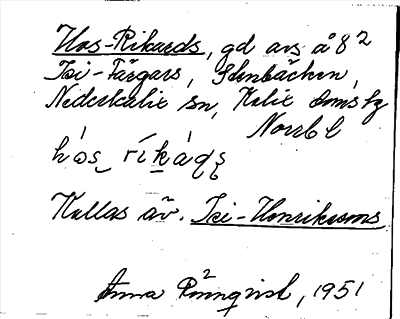 Hos-Rikards, gd avs å 8²
Isi-Färgars, Stenbäcken,
Nederkalix sn, Kalix domsfg
Norrb l
Kallas äv. Isi-Henriksons
Anna Rönnqvist, 1951